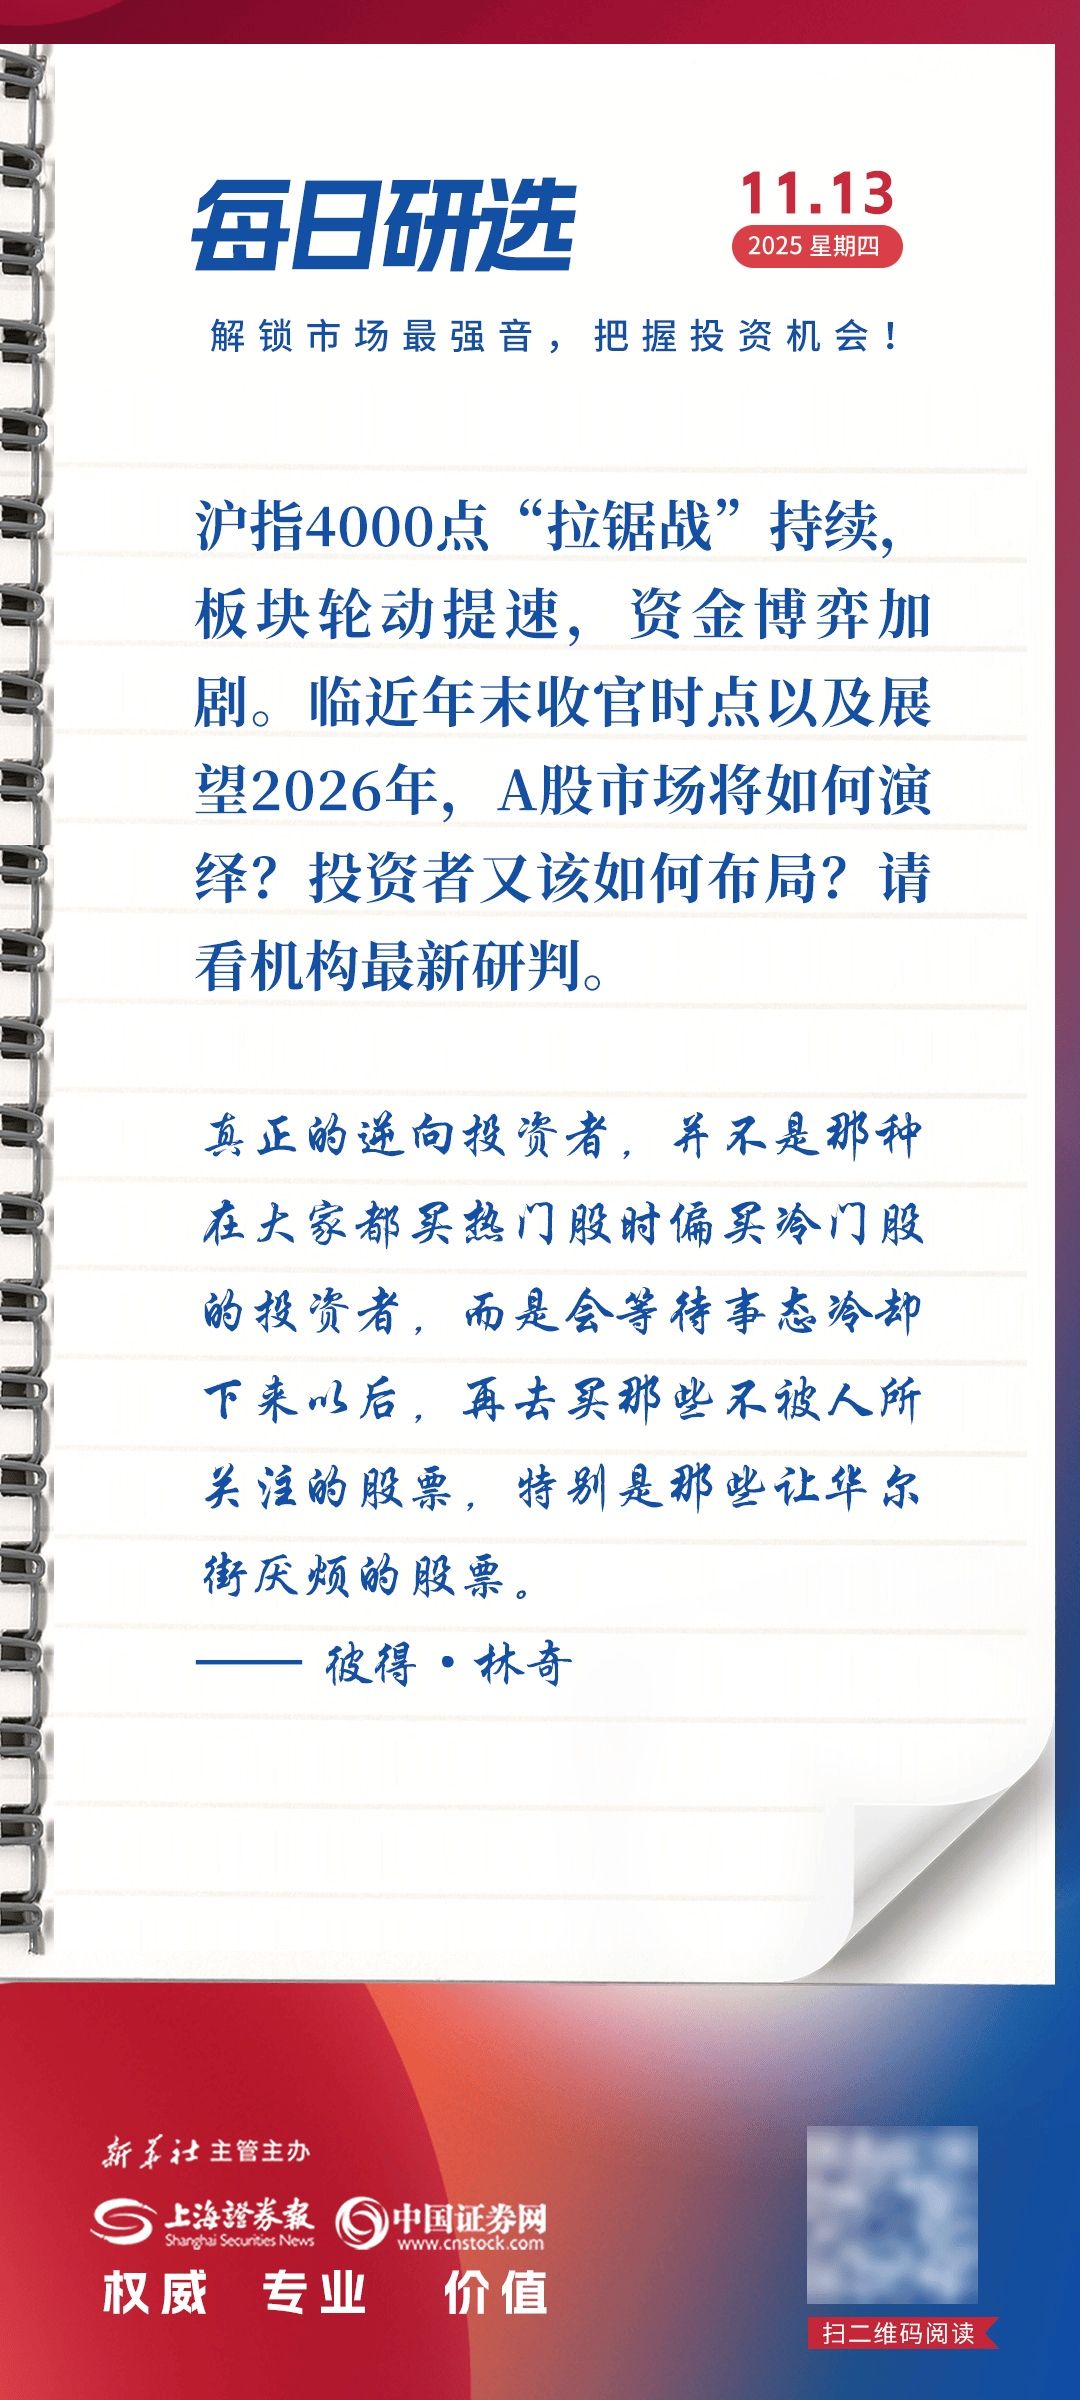 每日研选
11.13
2025 星期四
解锁市场最强音，把握投资机会！
沪指4000点“拉锯战”持续，
板块轮动提速，资金博弈加
剧。临近年末收官时点以及展
望2026年，A股市场将如何演
绎？投资者又该如何布局？请
看机构最新研判。
真正的逆向投资者，并不是那种
在大家都买热门股时偏买冷门股
的投资者，而是会等待事态冷却
下来以后，再去买那些不被人所
关注的股票，特别是那些让华尔
街厌烦的股票。
—— 彼得·林奇
新华社 主管主办
上海證券報 中国证券网
Shanghai Securities News www.cnstock.com
权威 专业 价值
扫二维码阅读